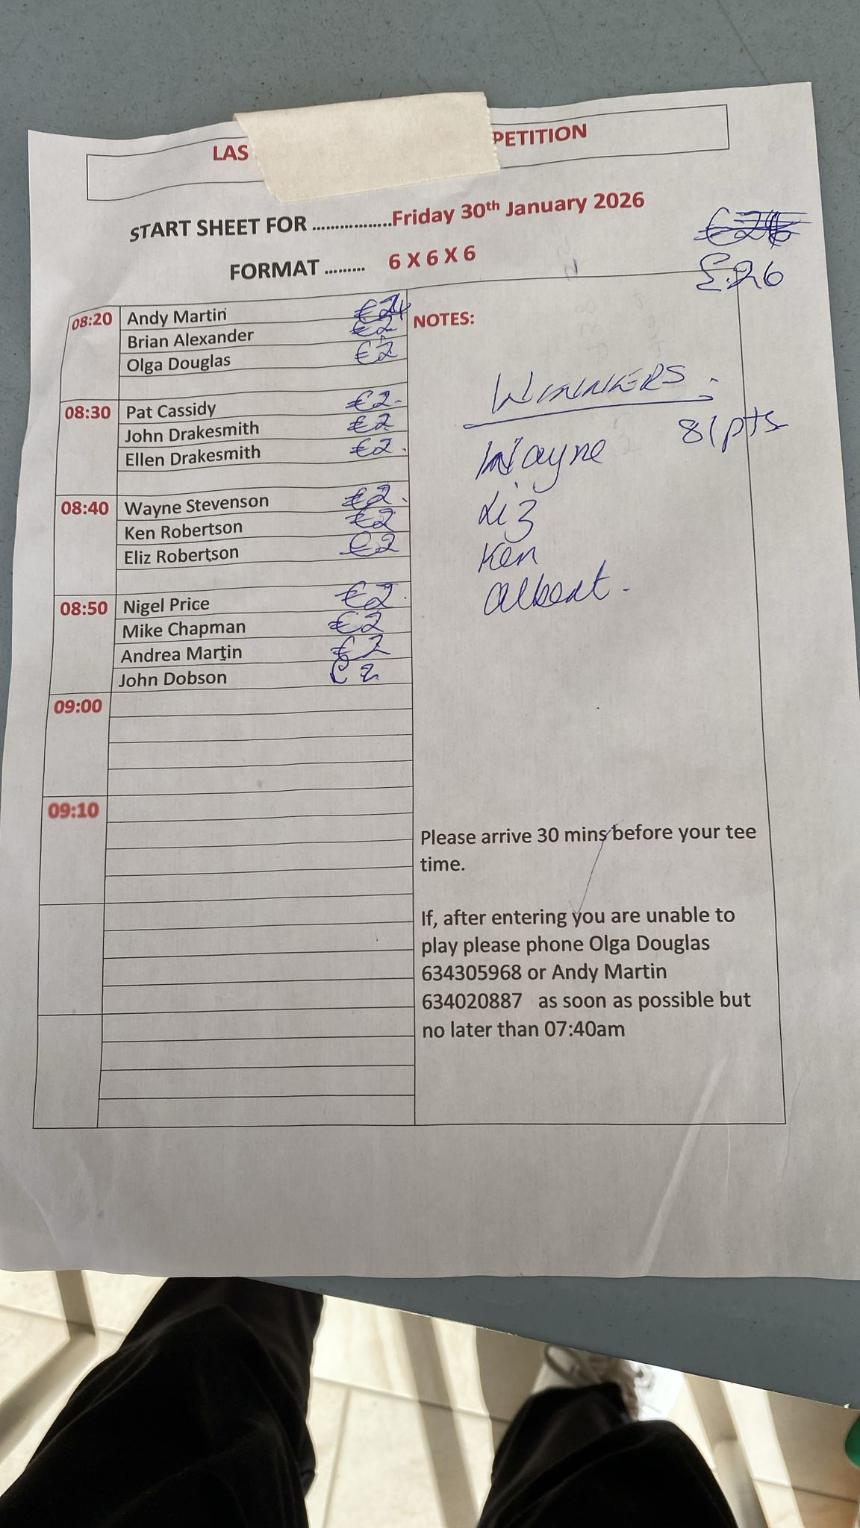 LAS PETITION
START SHEET FOR .................Friday 30th January 2026
FORMAT ......... 6 X 6 X 6
£26
08:20 Andy Martin
Brian Alexander €2
Olga Douglas €2
08:30 Pat Cassidy €2
John Drakesmith €2
Ellen Drakesmith €2
08:40 Wayne Stevenson €2
Ken Robertson €2
Eliz Robertson €2
08:50 Nigel Price €2
Mike Chapman €2
Andrea Martin €2
John Dobson €2
09:00
09:10
NOTES:
WINNERS
Wayne 81pts
Liz
Ken
Albert.
Please arrive 30 mins before your tee
time.
If, after entering you are unable to
play please phone Olga Douglas
634305968 or Andy Martin
634020887 as soon as possible but
no later than 07:40am